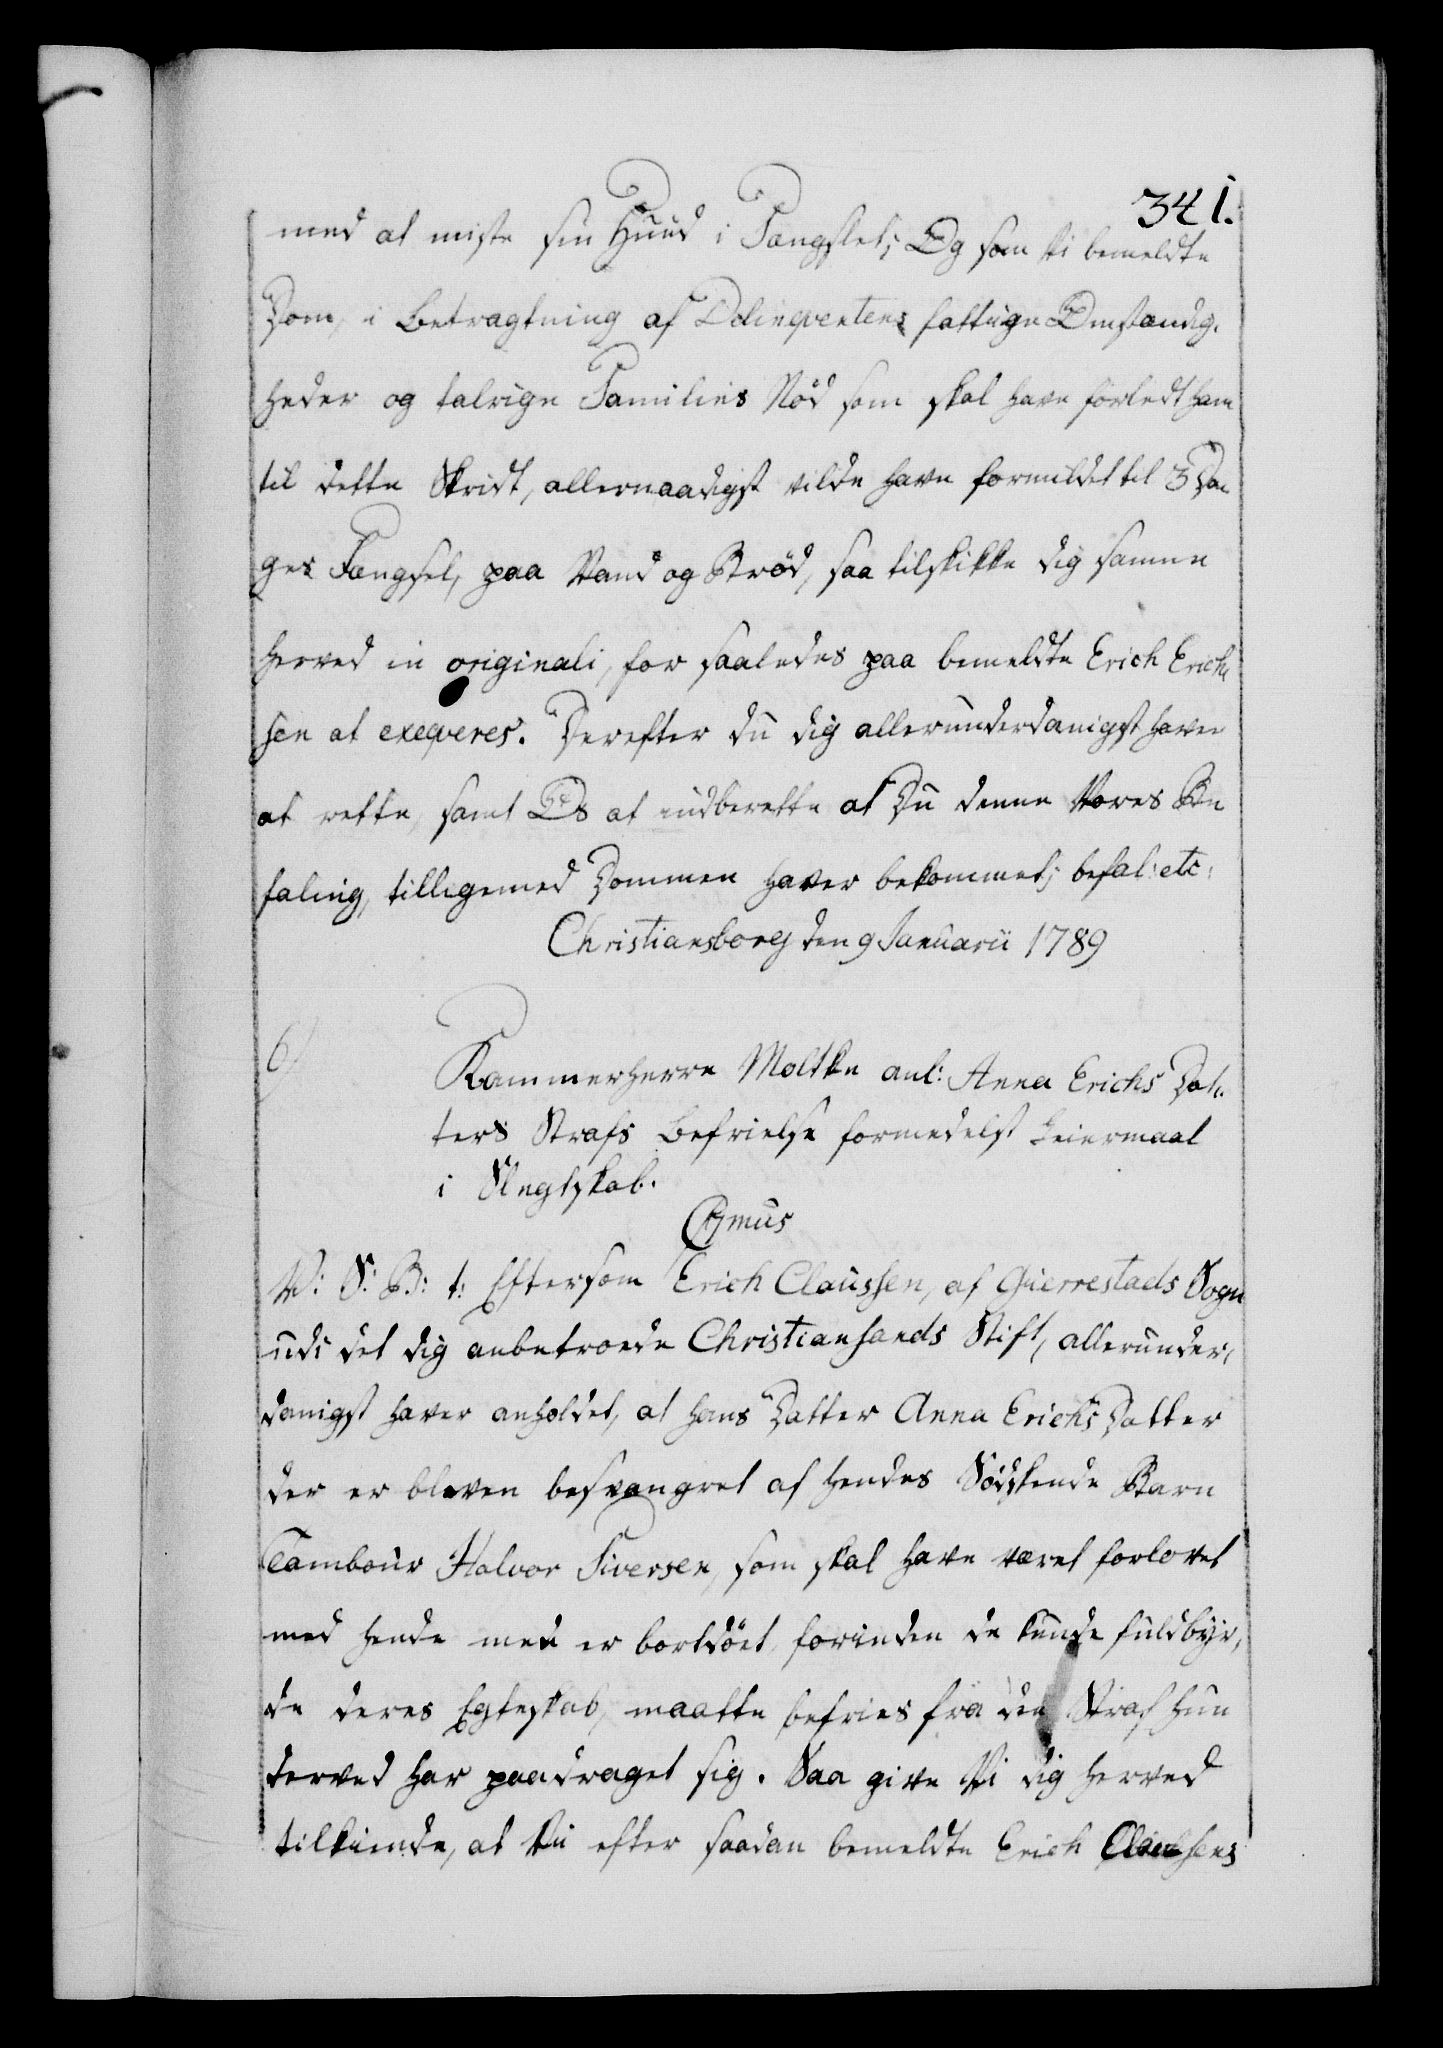 341.
med at miste sin Huud i Fængslet; Og som Vi bemeldte
Dom, i Betragtning af Delinqventens fattige Omstændig-
heder og talrige Families Nød som skal have forledt ham
til dette Skridt, allernaadigst vilde have formildet til 3 Da
ges Fængsel, paa Vand og Brød, saa tilskikke dig samme
herved in originali, for saaledes paa bemeldte Erich Erich-
sen at exeqveres. Derefter du dig allerunderdanigst haver
at rette, samt Os at indberette at Du denne Vores Be
faling, tilligemed Dommen haver bekommet; befal: etc:
Christiansborg den 9 Januarii 1789
6)
Kammerherre Moltke anl: Anna Erichs Dat-
ters Strafs Befrielse formedelst Leiermaal
i Slegtskab.
Chmus
V: S: B: t: Eftersom Erich Claussen, af Guerrestads Sogn
udi det dig anbetroede Christiansands Stift, allerunder-
danigst haver anholdet, at hans Datter Anna Erichs Datter
der er bleven besvangret af hendes Sødskende Barn
Tambour Halvor Siversen, som skal have været forlovet
med hende men er bortdöet, forinden de kunde fuldbyr-
de deres Egteskab, maatte befries fra den Straf hun
derved har paadraget sig. Saa give Vi dig herved
tilkiende, at Vi efter saadan bemeldte Erich Claussens